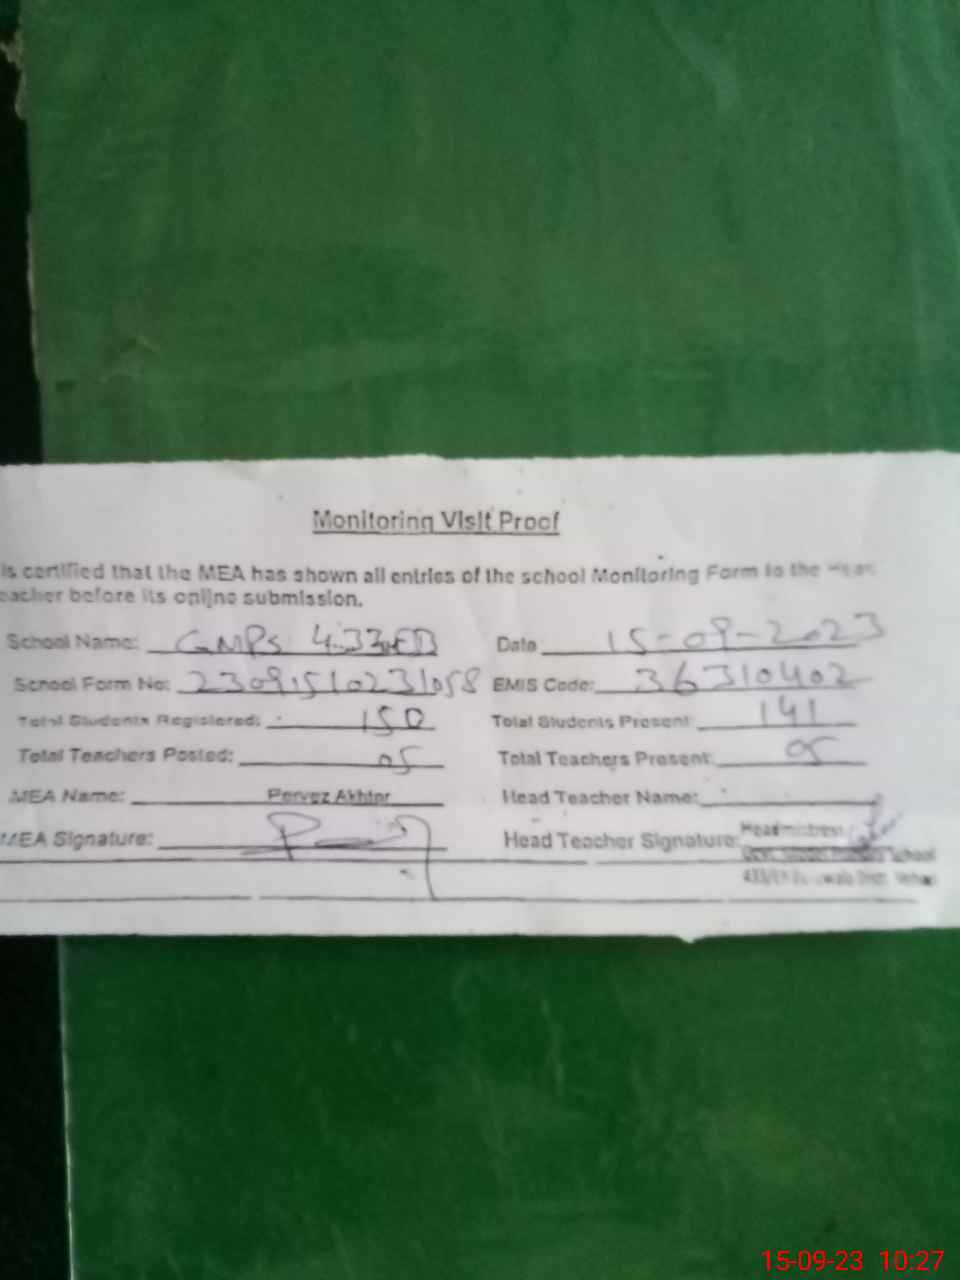 Monitoring Visit Proof
is certified that the MEA has shown all entries of the school Monitoring Form to the Head
eacher before its online submission.
School Name: GMPS 433/EB Date 15-09-2023
School Form No: 23091510231058 EMIS Code: 36310402
Total Students Registered: 150 Total Students Present 141
Total Teachers Posted: 05 Total Teachers Present: 05
MEA Name: Pervez Akhter Head Teacher Name:
MEA Signature: Head Teacher Signature: Headmistress
Govt. Model Primary School
433/EB Distt. Vehari
15-09-23 10:27